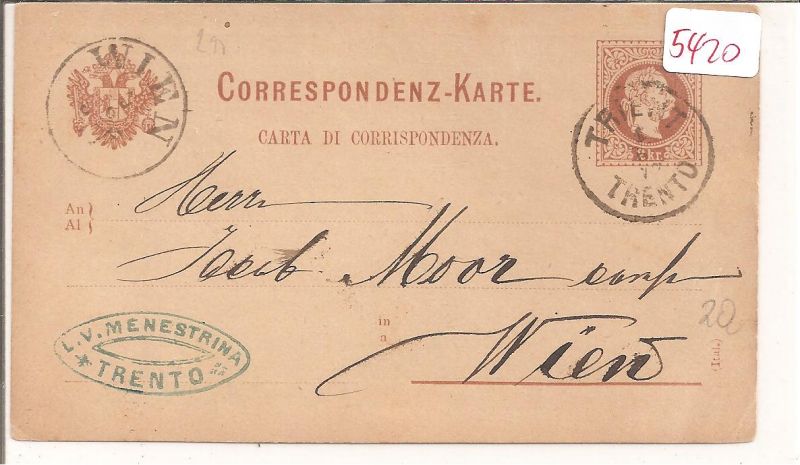 5420
WIEN
CORRESPONDENZ-KARTE.
CARTA DI CORRISPONDENZA.
TRIENT
TRENTO
2 kr.
An
Al
Herrn
Jacob Moor
in
a
Wien
20
(Ital.)
L.V. MENESTRINA
TRENTO